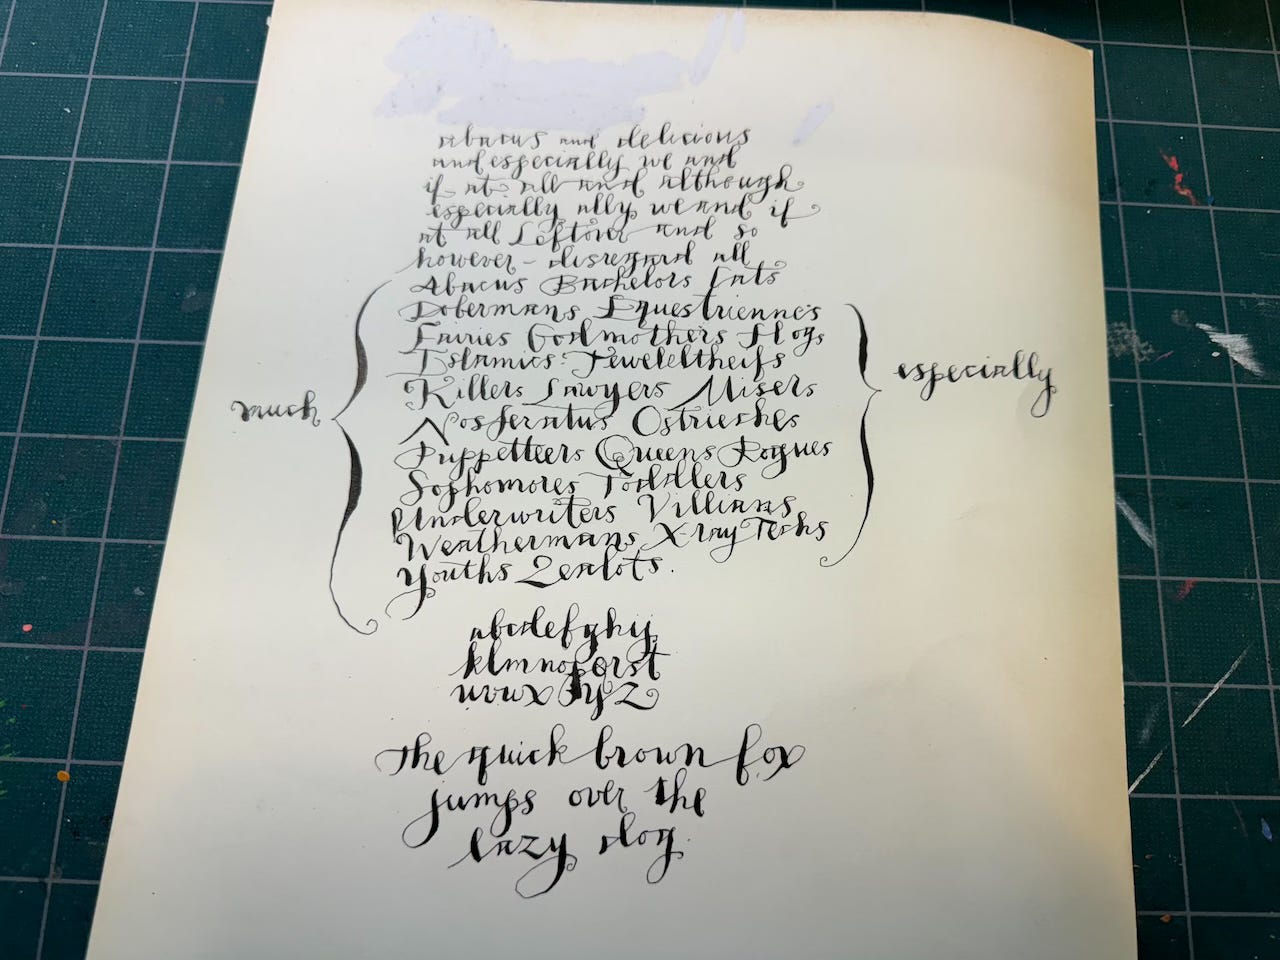 abacus and delicious
and especially we and
if at all and although
especially ally we and if
at all Leftover and so
however - disregard all
Abacus Bachelors Cats
Dobermans Equestriennes
Fairies Godmothers Hogs
Islamics Jeweleltheifs
much
Killers Lawyers Misers
especially
Nosferatus Ostriches
Puppetteers Queens Rogues
Sophomores Toddlers
Underwriters Villians
Weathermans X-ray Techs
Youths Zealots.
abcdefghij
klmnopqrst
uvwxyz
the quick brown fox
jumps over the
lazy dog.